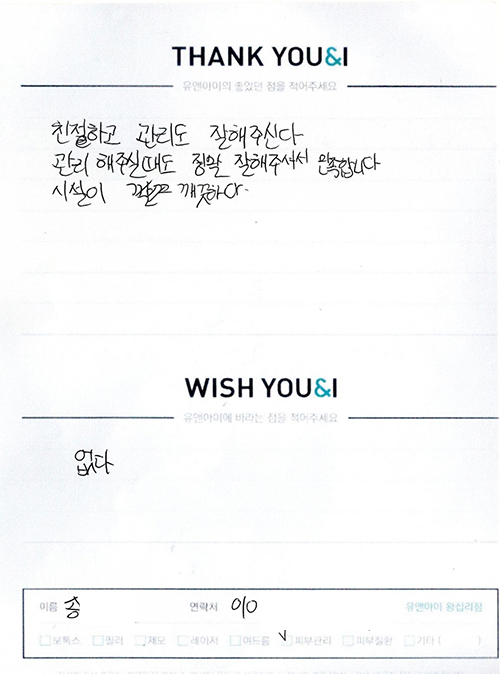 THANK YOU&I
유앤아이의 좋았던 점을 적어주세요
친절하고 관리도 잘해주신다
관리 해주실때도 정말 잘해주셔서 만족합니다
시설이 깨끗하다.
WISH YOU&I
유앤아이에 바라는 점을 적어주세요
없다
이름 송 연락처 010 유앤아이 왕십리점
보톡스 필러 제모 레이저 여드름 V 피부관리 피부질환 기타 ( )